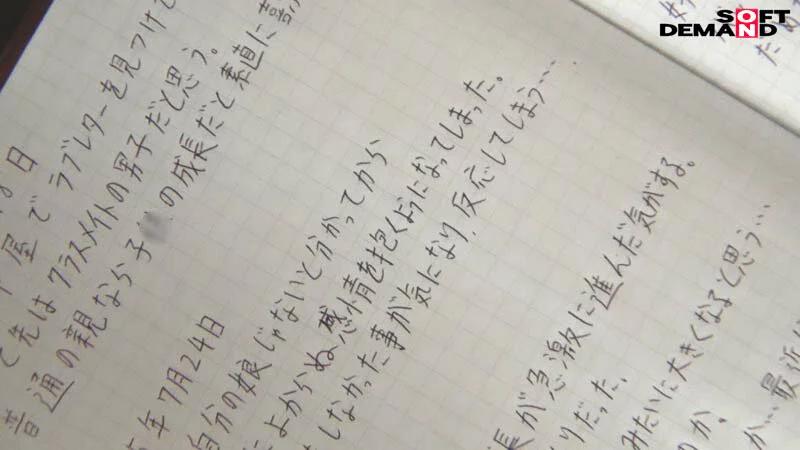 SOFT ON DEMAND
日
屋でラブレターを見つけ
先はクラスメイトの男子だと思う。
普通の親なら子 の成長だと素直に
年7月24日
自分の娘じゃないと分かってから
よからぬ感情を抱くようになってしまった。
しなかった事が気になり、反応してしまう…
長が急激に進んだ気がする。
りだった。
みたいに大きくなると思う…
のか。
か…最近